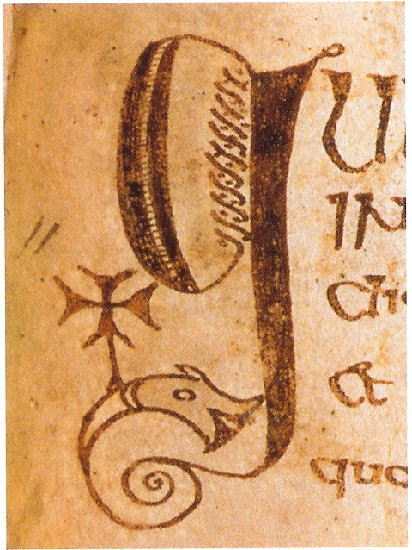 QU
IN
ch
et
quo